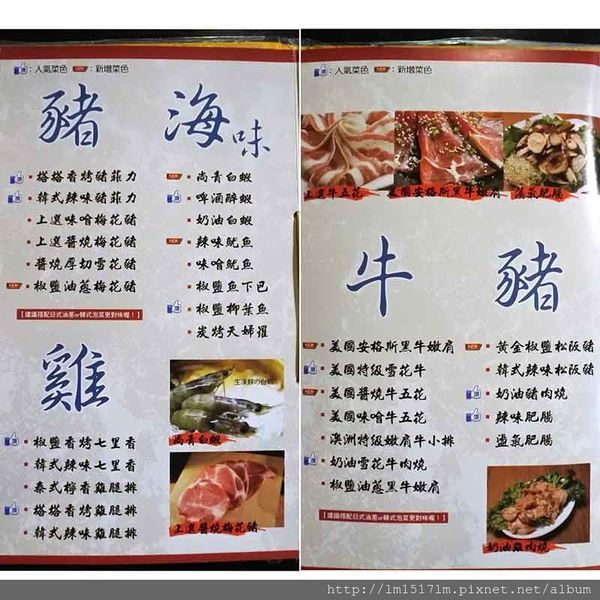 ：人氣菜色 NEW：新增菜色
豬
塔塔香烤豬菲力
韓式辣味豬菲力
上選味噌梅花豬
上選醬燒梅花豬
醬燒厚切雪花豬
椒鹽油蔥梅花豬
【建議搭配日式油蔥or韓式泡菜更對味喔！】
雞
椒鹽香烤七里香
韓式辣味七里香
泰式檸香雞腿排
塔塔香烤雞腿排
韓式辣味雞腿排
海味
尚青白蝦
啤酒醉蝦
奶油白蝦
辣味魷魚
味噌魷魚
椒鹽魚下巴
椒鹽柳葉魚
炭烤天婦羅
生凍鮮の白蝦
尚青白蝦
上選醬燒梅花豬
：人氣菜色 NEW：新增菜色
上選牛五花
美國安格斯黑牛嫩肩
蒸氣肥腸
牛
美國安格斯黑牛嫩肩
美國特級雪花牛
美國醬燒牛五花
美國味噌牛五花
澳洲特級嫩肩牛小排
奶油雪花牛肉燒
椒鹽油蔥黑牛嫩肩
【建議搭配日式油蔥or韓式泡菜更對味喔！】
豬
黃金椒鹽松阪豬
韓式辣味松阪豬
奶油豬肉燒
辣味肥腸
蒜氣肥腸
奶油雞肉燒
http://lml517lm.pixnet.net/album